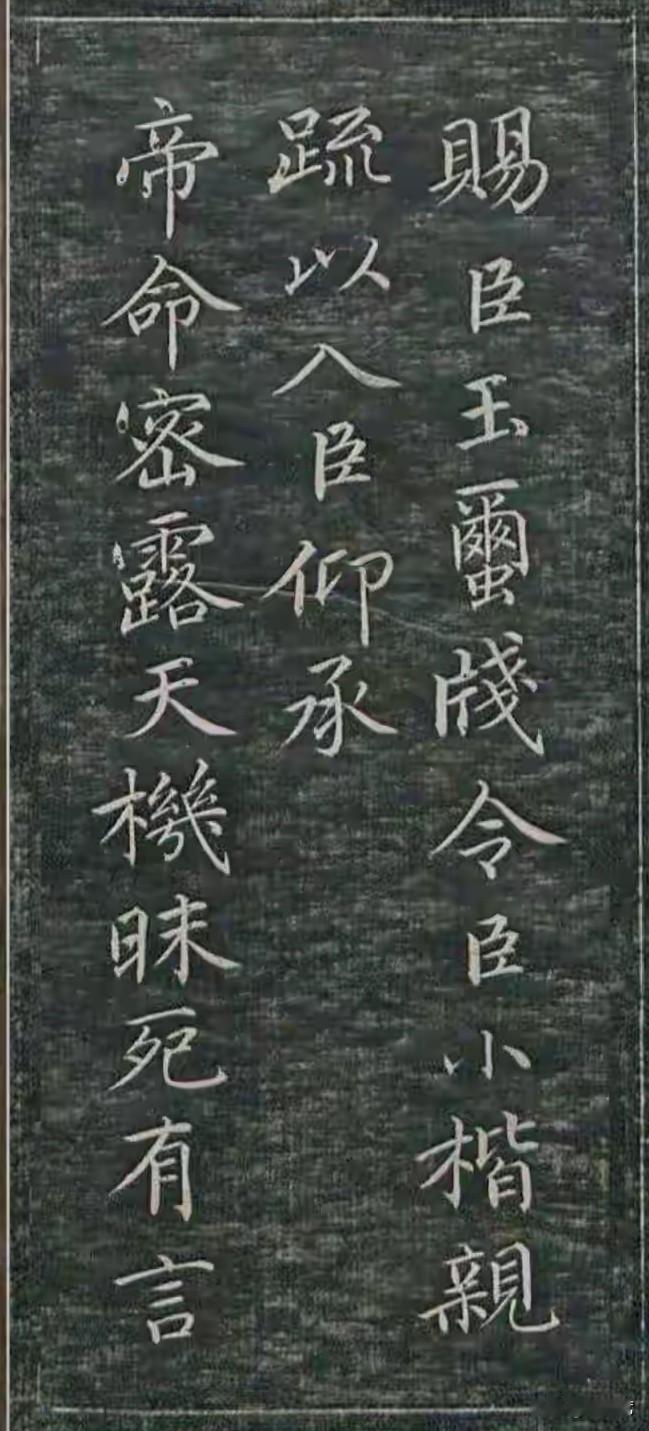 賜臣玉蠒牋令臣小楷親
疏以入臣仰承
帝命密露天機昧死有言